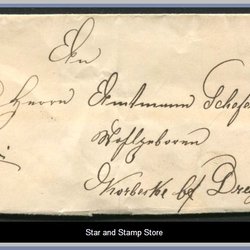 An
Herrn Amtmann Schofer
Wohlgeboren
Norbecke bf Dre
Star and Stamp Store